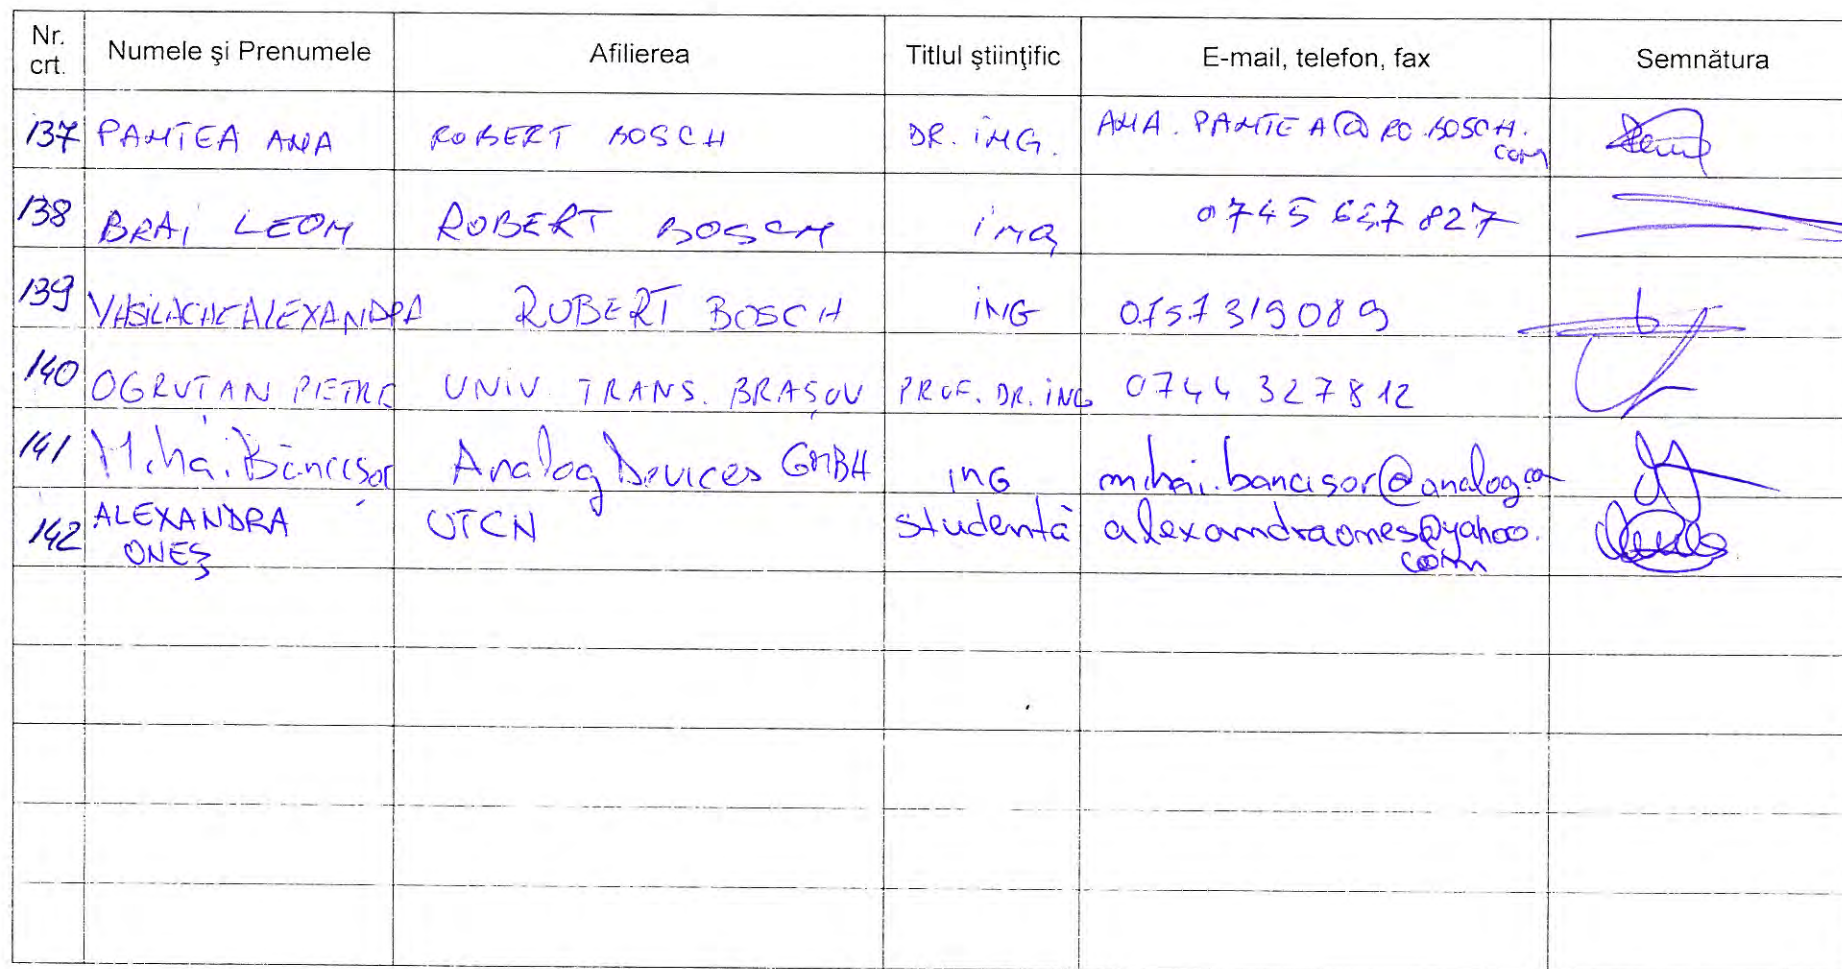 Nr. crt. Numele şi Prenumele Afilierea Titlul ştiinţific E-mail, telefon, fax Semnătura
137 PANTEA ANA ROBERT BOSCH DR. ING. ANA.PANTEA@RO.BOSCH.
COM
138 BRAI LEON ROBERT BOSCH ing 0745 657 827
139 VASILACHE ALEXANDRA ROBERT BOSCH ING 0757 319089
140 OGRUTAN PETRE UNIV. TRANS. BRAŞOV PROF. DR. ING 0744 327812
141 Mihai Băncişor Analog Devices GMBH ing mihai.bancisor@analog.com
142 ALEXANDRA UTCN studentă alexandraones@yahoo.
ONEŞ com